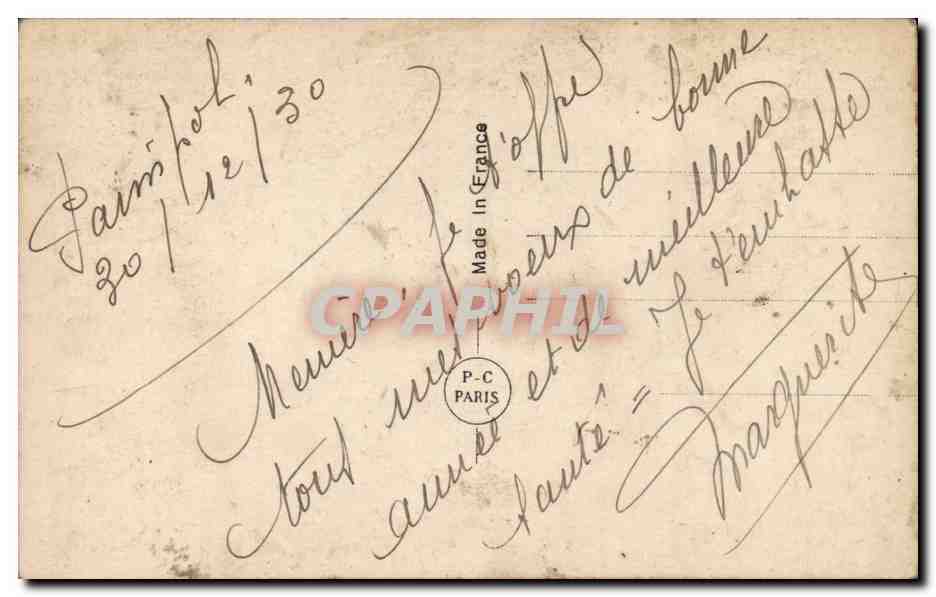 Paimpol.
30/12/30
Mémère, Je t'offre
tous mes voeux de bonne
année et de meilleure
santé = Je t'embrasse
Marguerite
Made In France
P-C
PARIS
CPAPHIL